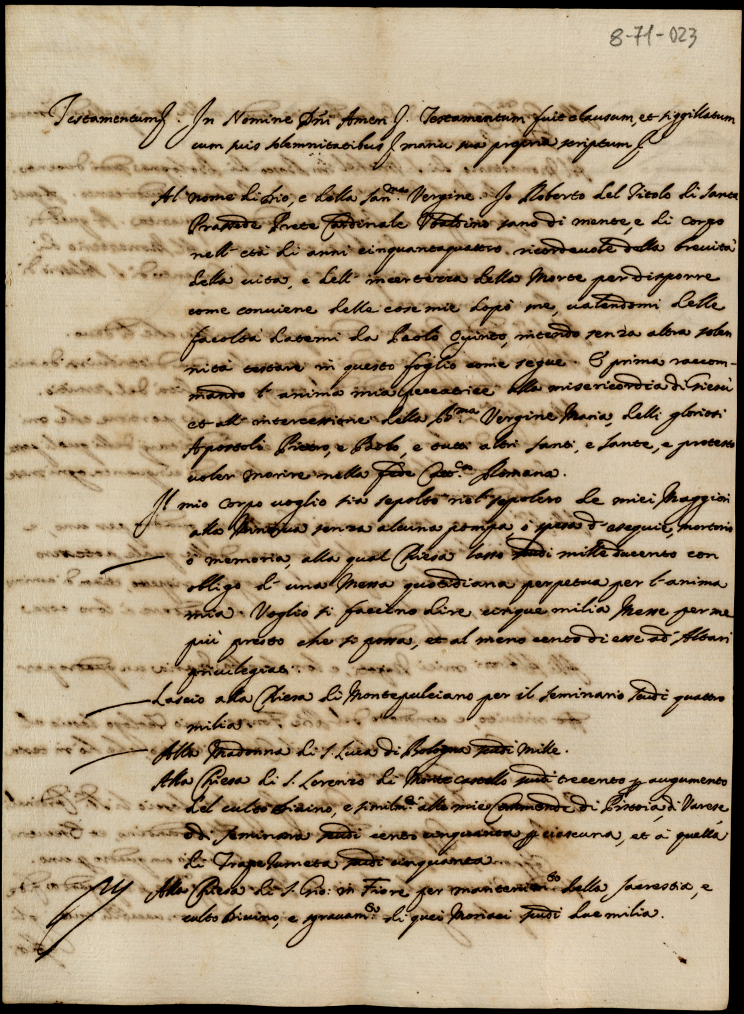 8-71-023
Testamentum. In Nomine Dñi Amen. Testamentum fuit clausum, et sigillatum
cum suis solemnitatibus manu sua propria scriptum
Al nome di Dio, e della San.ma Vergine. Io Roberto del Titolo di Santa
Prassede Prete Cardinale Ubaldino sano di mente, e di corpo
nell' età di anni cinquantaquattro ricordevole della brevità
della vita, e dell' incertezza della Morte per disporre
come conviene delle cose mie dopò me, valendomi delle
facoltà datemi da Paolo Quinto, intendo senza altra solen
nità testare in questo foglio come segue. E prima raccom-
mando l' anima mia peccatrice alla misericordia di Giesù
et all' intercessione della B.ma Vergine Maria, delli gloriosi
Apostoli Pietro, e Paolo, e tutti altri Santi, e Sante, e protesto
voler morire nella Fede Catt.ca Romana.
Il mio corpo voglio sia sepolto nel sepolcro de miei Maggiori
alla Minerva senza alcuna pompa ò spesa d' esequie, mortorio
ò memoria, alla qual Chiesa lasso scudi mille ducento con
obligo d' una Messa quotidiana perpetua per l' anima
mia. Voglio si faccino dire cinque milia Messe per me
più presto che si possa, et al meno cento di esse ad' Altari
privilegiati.
Lascio alla Chiesa di Montepulciano per il seminario scudi quattro
milia.
Alla Madonna di S. Luca di Bologna scudi Mille.
Alla Chiesa di S. Lorenzo di Monte Castello scudi trecento p augumento
del culto divino, e simil.te alle mie Commende di Pistoia, di Varese
ò di Seminara scudi cento cinquanta p ciascuna, et à quella
di Trapezumeta scudi cinquanta.
Alla Chiesa di S. Gio: in Fiore per mantenim.to della sacrestia, e
culto Divino, e di quei Monaci scudi due milia.